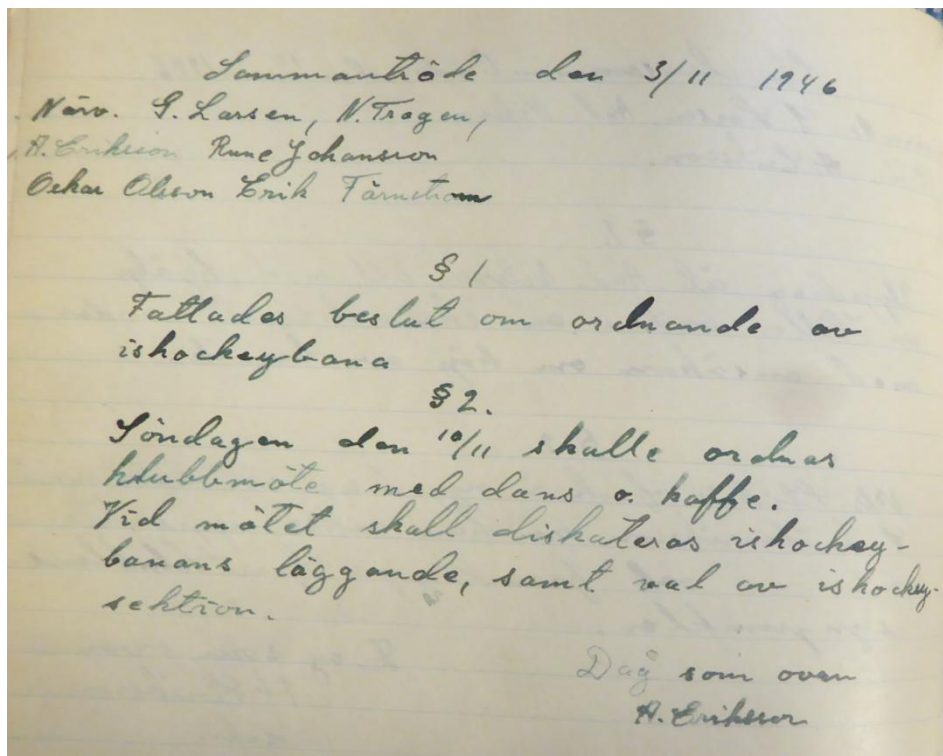 Sammanträde den 3/11 1946
Närv. G. Larsen, N. Trogen,
A. Eriksson Rune Johansson
Oskar Olsson Erik Färnstrom
§ 1
Fattades beslut om ordnande av
ishockeybana
§ 2.
Söndagen den 10/11 skulle ordnas
klubbmöte med dans o. kaffe.
Vid mötet skall diskuteras ishockey-
banans läggande, samt val av ishockey-
sektion.
Dag som ovan
A. Eriksson